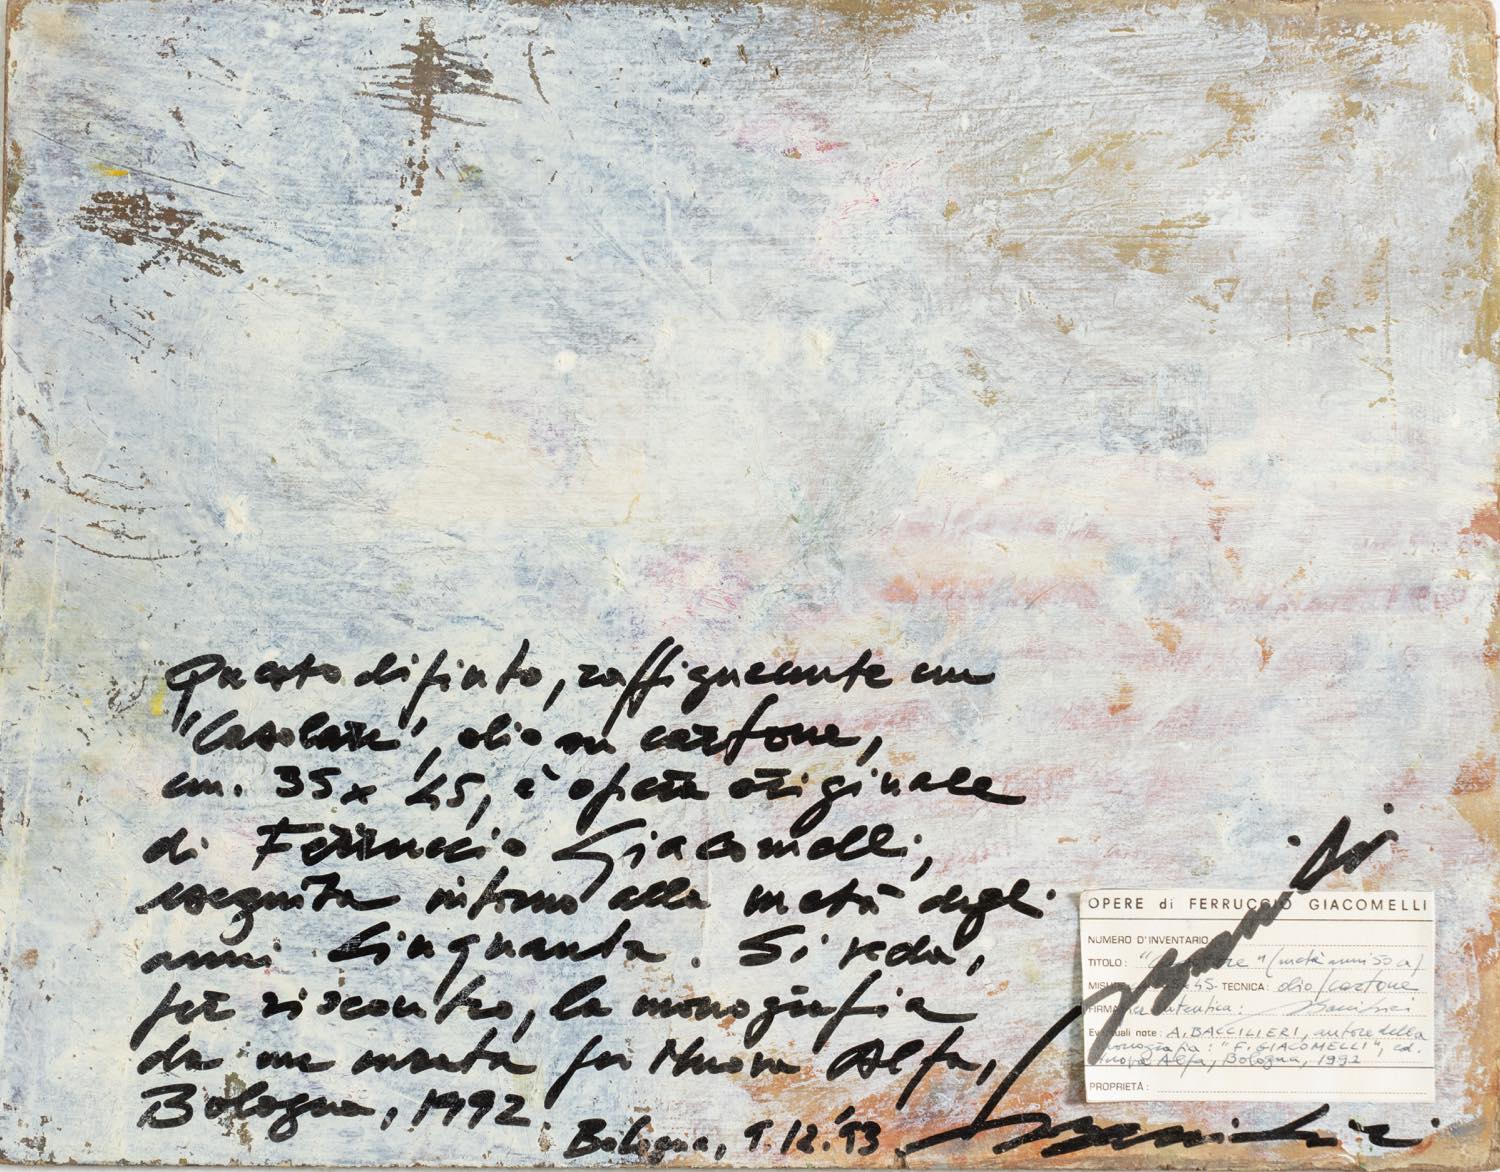 Questo dipinto, raffigurante un
"Casolare", olio su cartone,
cm. 35 x 45, è opera originale
di Ferruccio Giacomelli,
eseguita intorno alla metà degli
anni Cinquanta. Si veda,
per riscontro, la monografia
da me curata per Nuova Alfa,
Bologna, 1992.
Bologna, 1.12.'93
OPERE di FERRUCCIO GIACOMELLI
NUMERO D'INVENTARIO
TITOLO: (metà anni 50 ca)
45 TECNICA: olio/cartone
FIRMA autentica:
note: A. BACCILIERI, autore della
monografia: "F. GIACOMELLI", ed.
Nuova Alfa, Bologna, 1992
PROPRIETÀ: